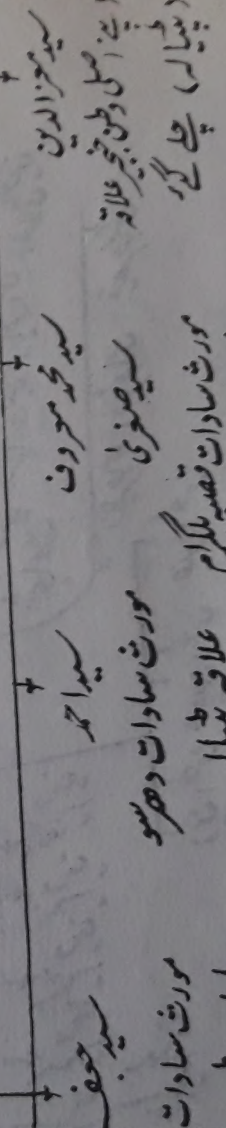 سید معز الدین
اپنے اصلی وطن جھجیر علاقہ
(پٹیالہ) چلے گئے
سید محمد معروف
سید صغریٰ
مورث سادات قصبہ بلگرام
سید احمد
مورث سادات دھرسو
علاقہ پٹیالہ
سید جعفر
مورث سادات